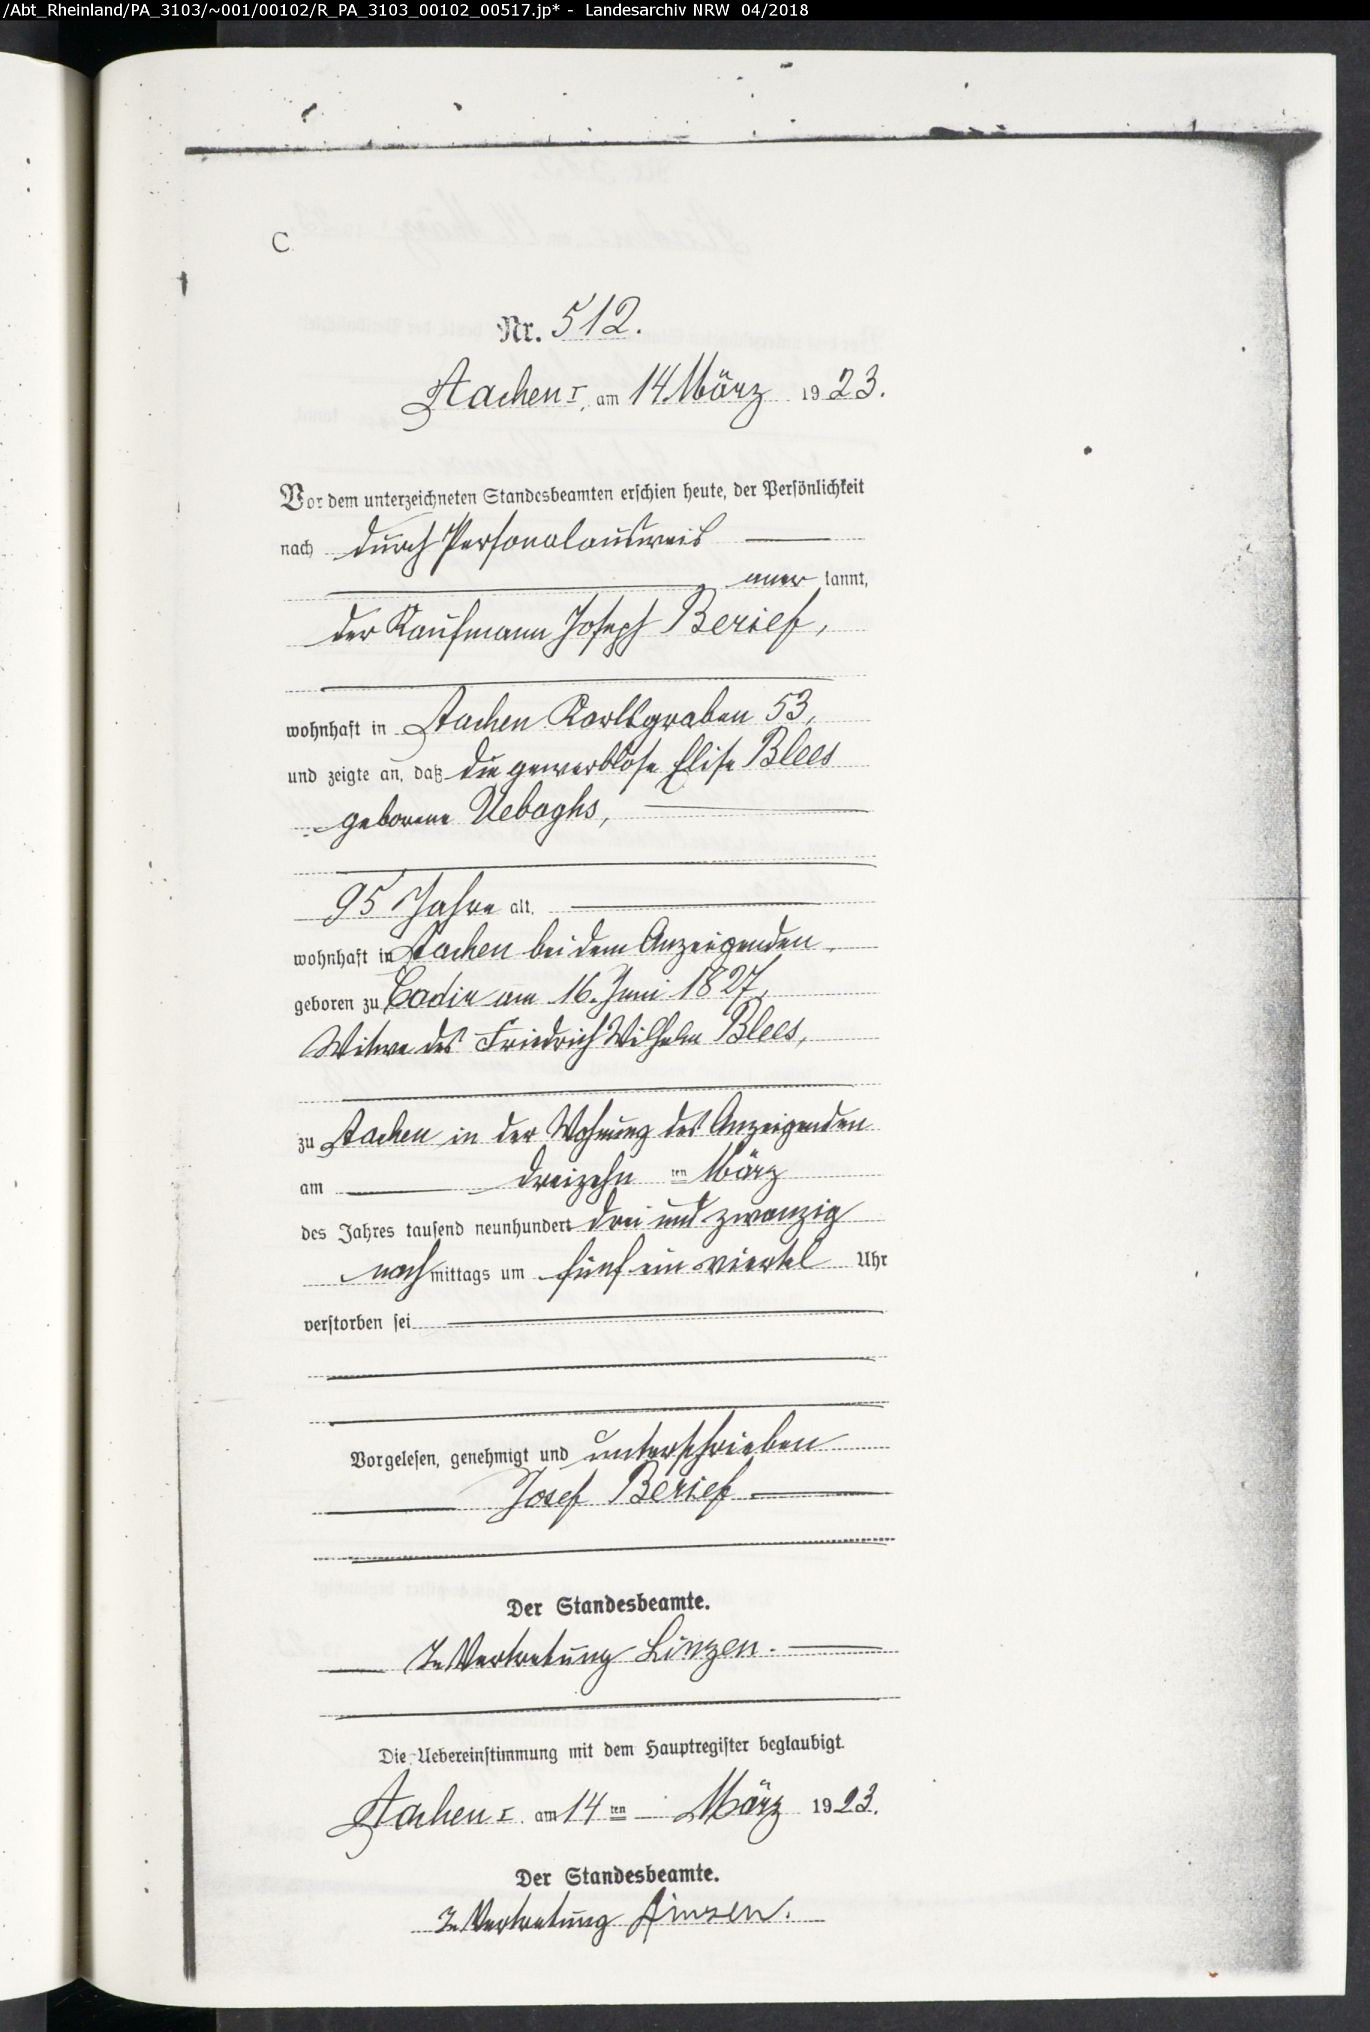 /Abt_Rheinland/PA_3103/~001/00102/R_PA_3103_00102_00517.jp* - Landesarchiv NRW 04/2018
C
Nr. 512.
Aachen I, am 14. März 1923.
Vor dem unterzeichneten Standesbeamten erschien heute, der Persönlichkeit
nach durch Personalausweis
aner kannt,
der Kaufmann Joseph Berief,
wohnhaft in Aachen Karlsgraben 53,
und zeigte an, daß die gewerblose Elise Blees
geborene Uebaghs,
95 Jahre alt,
wohnhaft in Aachen bei dem Anzeigenden,
geboren zu am 16. Juni 1827,
Witwe des Friedrich Wilhelm Blees,
zu Aachen in der Wohnung des Anzeigenden
am dreizehn ten März
des Jahres tausend neunhundert drei und zwanzig
nach mittags um fünf ein viertel Uhr
verstorben sei
Vorgelesen, genehmigt und unterschrieben
Josef Berief
Der Standesbeamte.
In Vertretung Linzen.
Die Uebereinstimmung mit dem Hauptregister beglaubigt.
Aachen I. am 14 ten März 1923.
Der Standesbeamte.
In Vertretung Linzen.